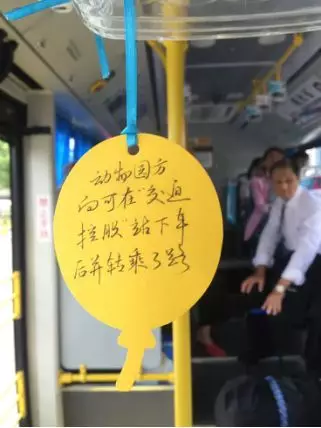 动物园方
向可在"交通
控股"站下车
后并转乘3路